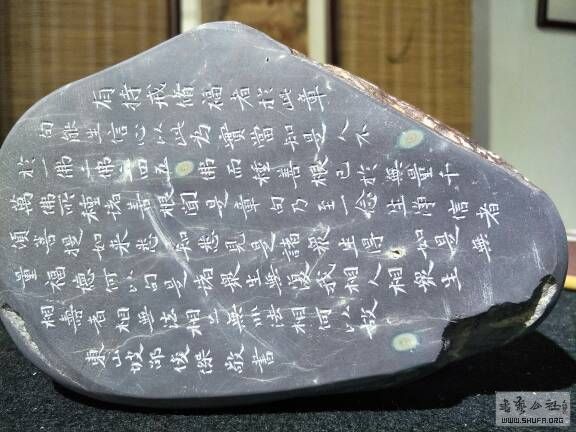 有持戒脩福者於此章
句能生信心以此為實當知是人不
於一佛二佛三四五佛而種善根已於無量千
萬佛所種諸善根聞是章句乃至一念生淨信者
須菩提如來悉知悉見是諸眾生得如是無
量福德何以故是諸眾生無復我相人相眾生
相壽者相無法相亦無非法相何以故
東山邵俊傑敬書
WWW.SHUFA.ORG